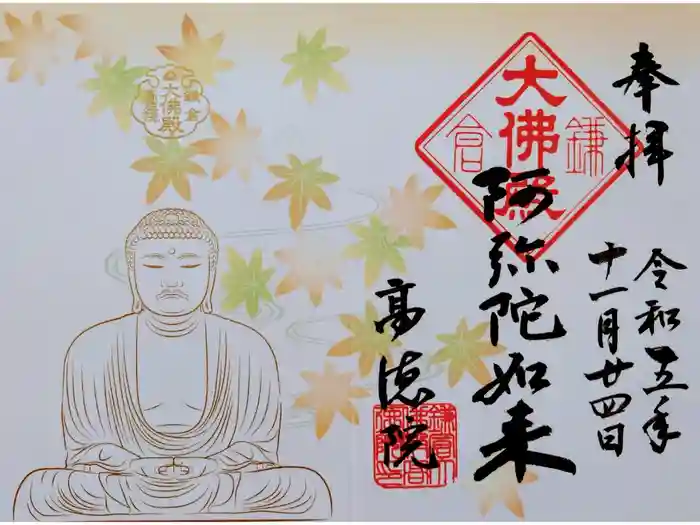 奉拝
令和五年
十一月廿四日
鎌倉
大佛殿
阿弥陀如来
高徳院
鎌倉
大佛殿